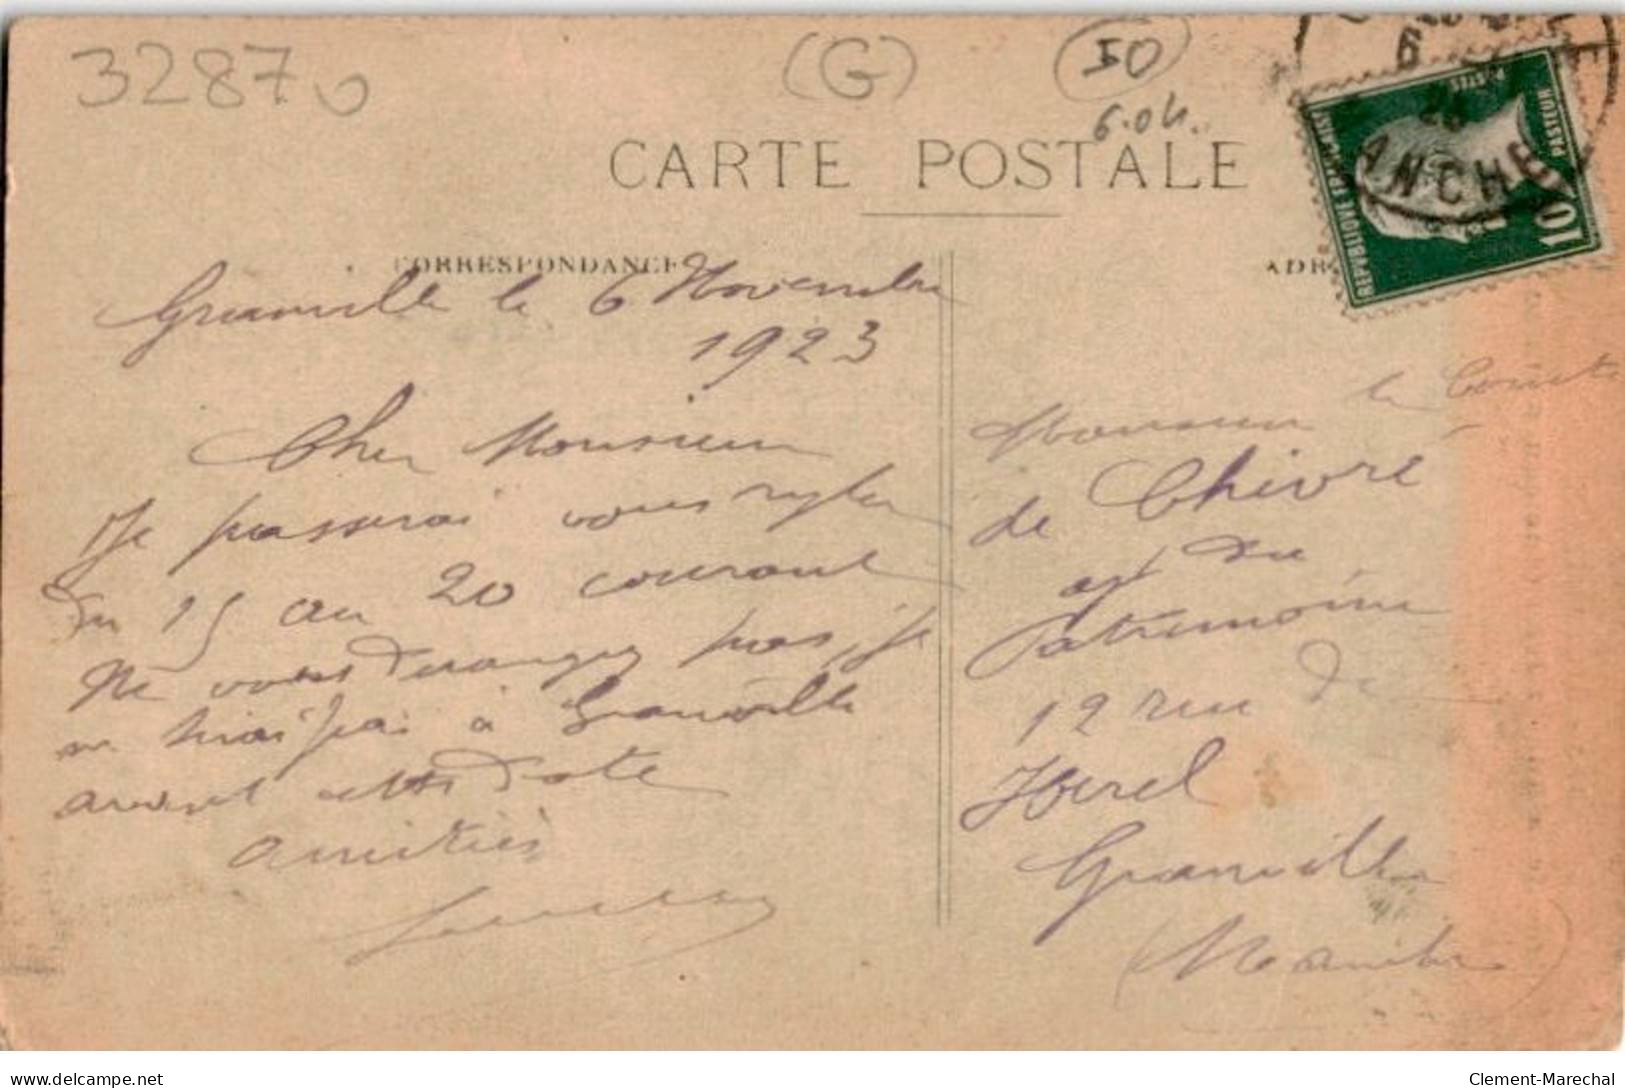 32870
(G)
50
6.04
CARTE POSTALE
CORRESPONDANCE
ADR
REPUBLIQUE FRANÇAISE
POSTES
PASTEUR
10
ANCHE
Granville le 6 Novembre
1923
Cher Monsieur
Je passerai vous régler
du 15 au 20 courant
Ne vous derangez pas, je
ne serai pas à Granville
avant cette date
amitiés
Monsieur le Comte
de Chivré
du
Patrimoine
12 rue de
Hérel
Granville
(Manche)
delcampe.net
Clement-Marechal